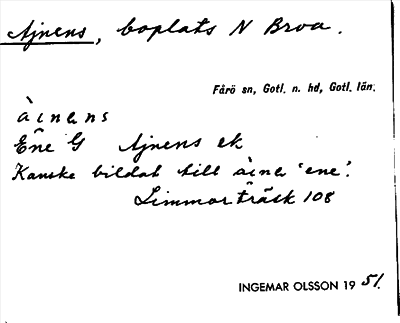 Ajnens, boplats N Broa.
Fårö sn, Gotl. n. hd, Gotl. län.
àinəns
Ene G Ajnens ek
Kanske bildat till àinə 'ene'.
Limmorträsk 108
INGEMAR OLSSON 1951.